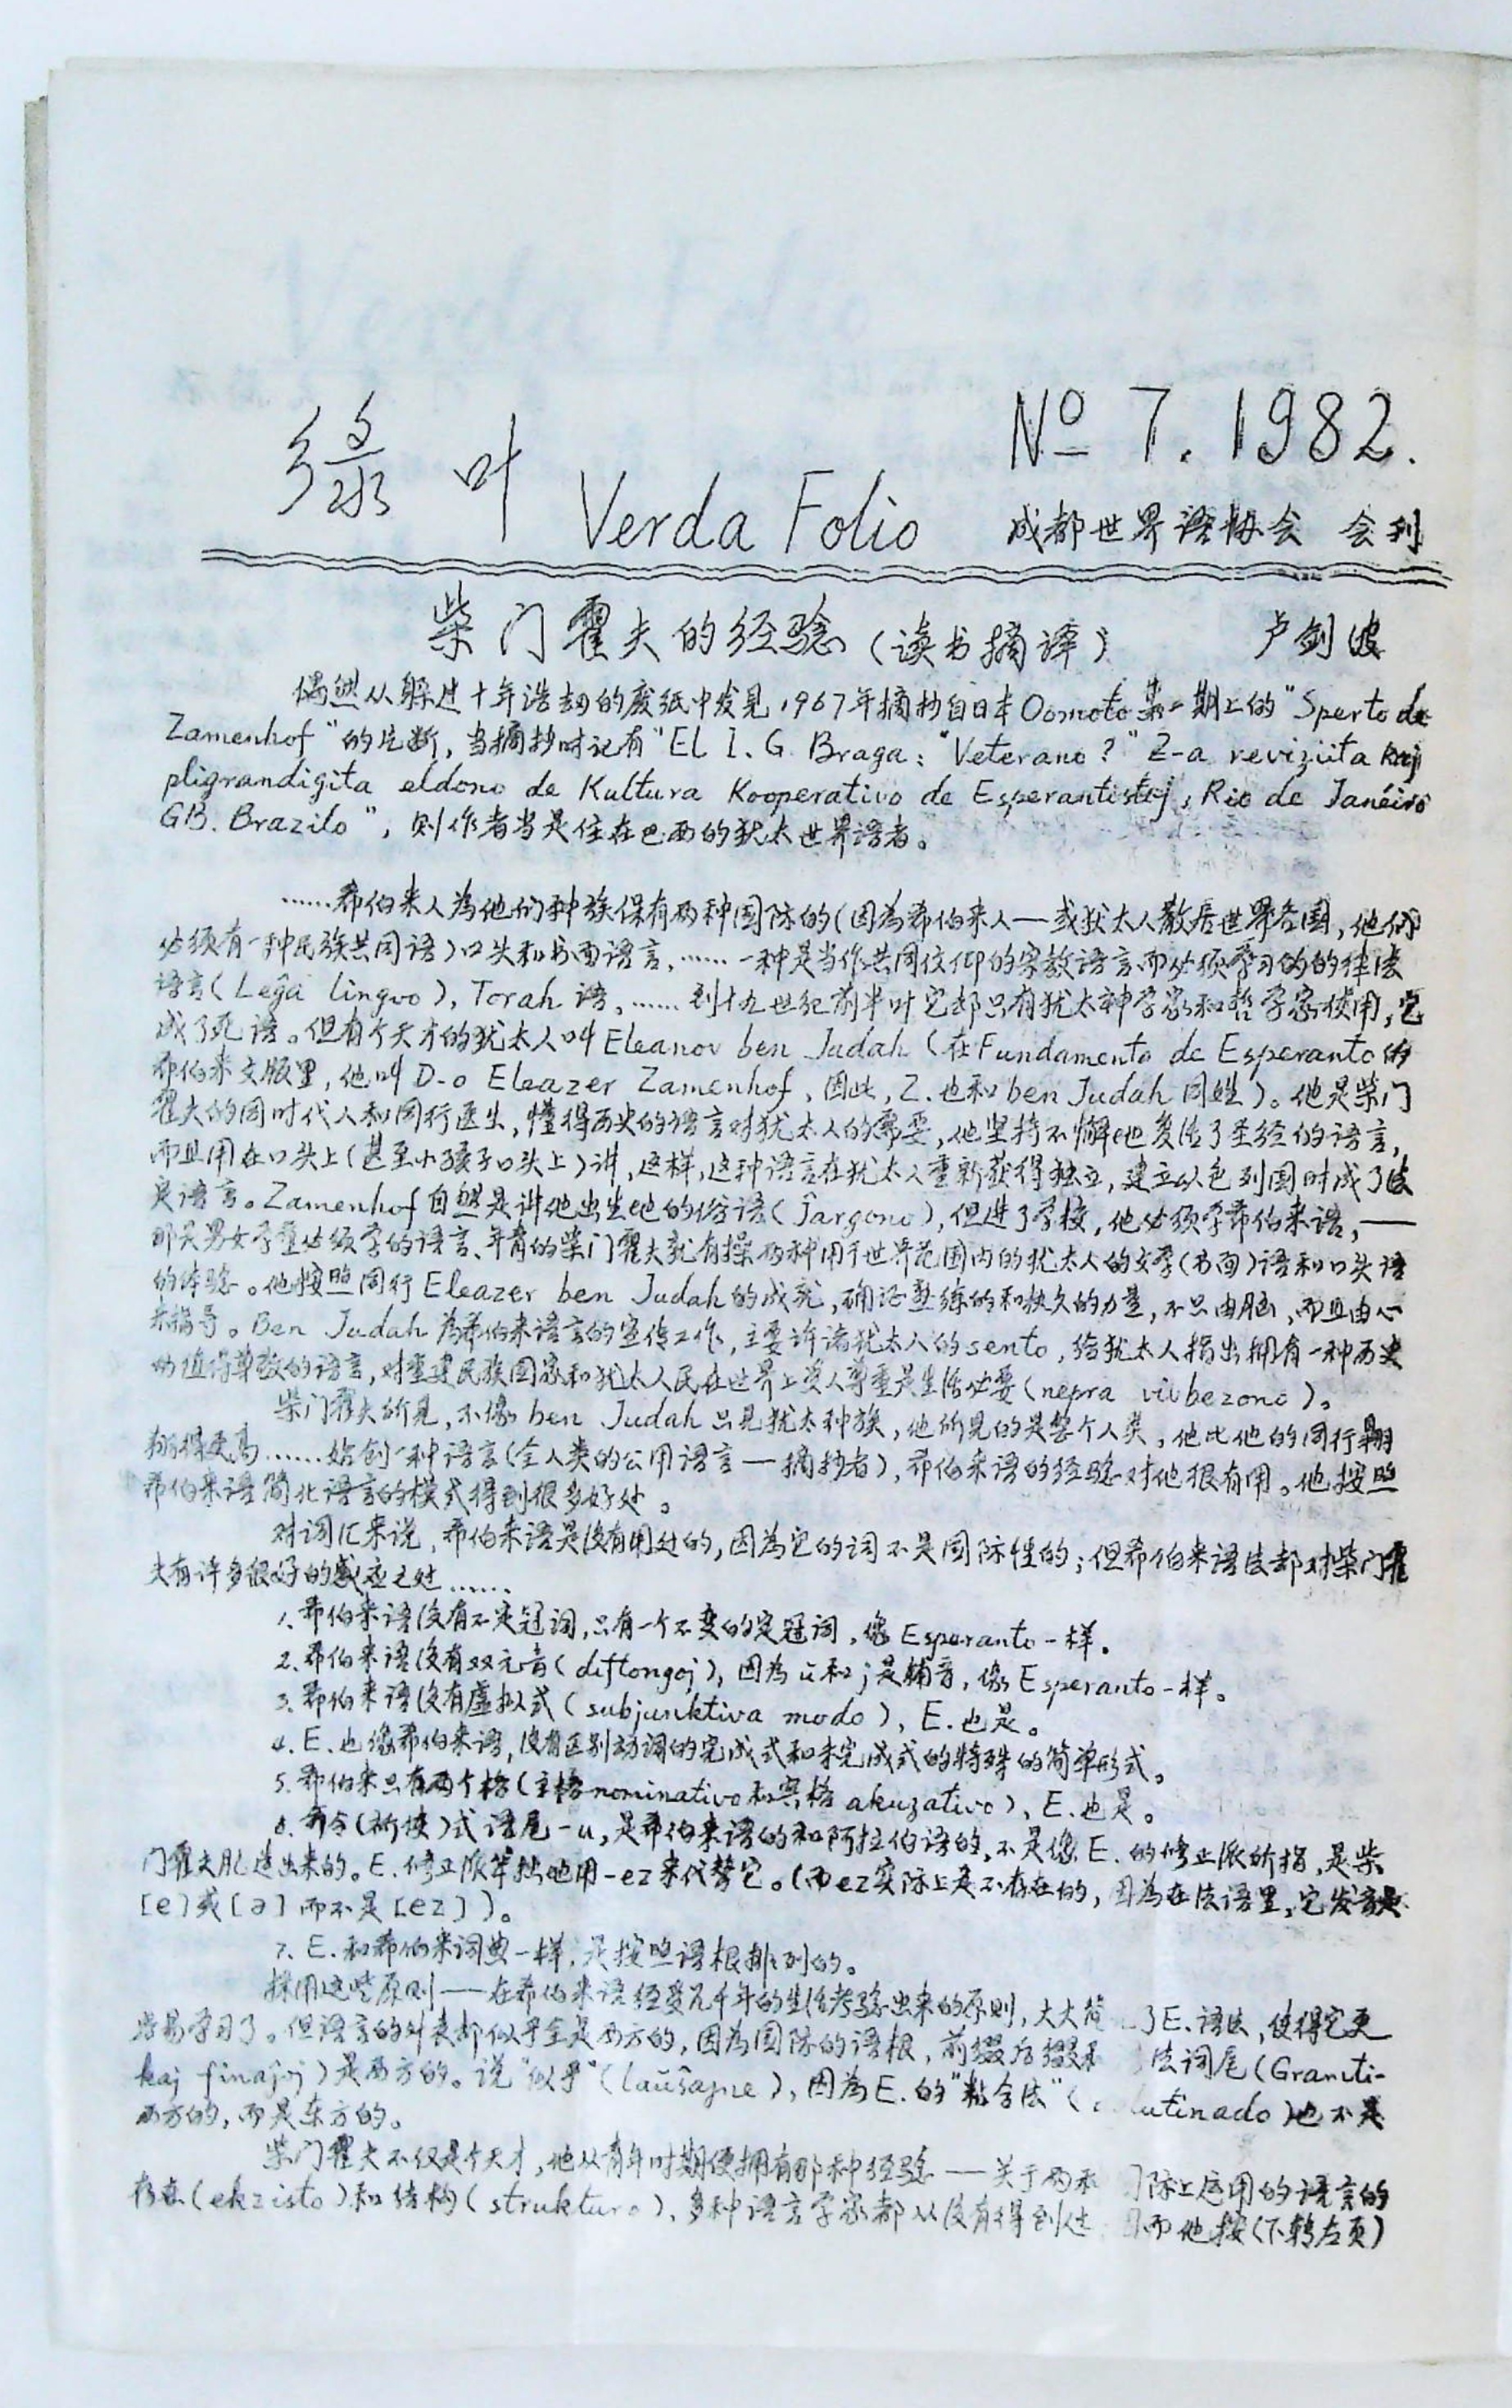 绿叶 Verda Folio
№ 7. 1982.
成都世界语协会 会刊
柴门霍夫的经验（读书摘译） 卢剑波
偶然从躲过十年浩劫的废纸中发见1967年摘抄自日本Oomoto第一期上的"Sperto de
Zamenhof"的片断，当摘抄时记有"El I. G. Braga: "Veterano?" 2-a reviziita kaj
pligrandigita eldono de Kultura Kooperativo de Esperantistoj, Rio de Janéiro
GB. Brazilo"，则作者当是住在巴西的犹太世界语者。
……希伯来人为他们种族保有两种国际的（因为希伯来人一或犹太人散居世界各国，他们
必须有一种民族共同语）口头和书面语言，……一种是当作共同信仰的宗教语言而必须学习的的律法
语言（Leĝa lingvo），Torah 语，……到十九世纪前半叶它却只有犹太神学家和哲学家使用，它
成了死语。但有个天才的犹太人叫 Eleanov ben Judah（在Fundamento de Esperanto的
希伯来文版里，他叫 D-o Eleazer Zamenhof，因此，Z. 也和 ben Judah 同姓）。他是柴门
霍夫的同时代人和同行医生，懂得历史的语言对犹太人的需要，他坚持不懈地复活了圣经的语言，
而且用在口头上（甚至小孩子口头上）讲，这样，这种语言在犹太人重新获得独立，建立以色列国时成了法
定语言。Zamenhof 自然是讲他出生地的俗语（ĵargono），但进了学校，他必须学希伯来语，——
那是男女学童必须学的语言、年青的柴门霍夫就有操两种用于世界范围内的犹太人的文学（书面）语和口头语
的体验。他按照同行 Eleazer ben Judah 的成就，确证熟练的和持久的力量，不只由脑，而且由心
来指导。Ben Judah 为希伯来语言的宣传工作，主要诉诸犹太人的 sento，给犹太人指出拥有一种历史
的值得尊敬的语言，对重建民族国家和犹太人民在世界上受人尊重是生活必要（nepra vivbezono）。
柴门霍夫所见，不像 ben Judah 只见犹太种族，他所见的是整个人类，他比他的同行翱
翔得更高……始创一种语言（全人类的公用语言一摘抄者），希伯来语的经验对他很有用。他按照
希伯来语简化语言的模式得到很多好处。
对词汇来说，希伯来语是没有用处的，因为它的词不是国际性的；但希伯来语法却对柴门霍
夫有许多很好的感应之处……
1. 希伯来语没有不定冠词，只有一个不变的定冠词，像 Esperanto 一样。
2. 希伯来语没有双元音（diftongoj），因为 ŭ 和 j 是辅音，像 Esperanto 一样。
3. 希伯来语没有虚拟式（subjunktiva modo），E. 也是。
4. E. 也像希伯来语，没有区别动词的完成式和未完成式的特殊的简单形式。
5. 希伯来只有两个格（主格 nominativo 和宾格 akuzativo），E. 也是。
6. 命令（祈使）式语尾 -u，是希伯来语的和阿拉伯语的，不是像 E. 的修正派所指，是柴
门霍夫乱造出来的。E. 修正派笨拙地用 -ez 来代替它。（而 ez 实际上是不存在的，因为在法语里，它发音是
[e]或[ə]而不是[ez]）。
7. E. 和希伯来词典一样，是按照语根排列的。
採用这些原则——在希伯来语经受几千年的生活考验出来的原则，大大简 了E. 语法，使得它更
容易学习了。但语言的外表却似乎全是西方的，因为国际的语根，前缀后缀和 法词尾（Gramti-
kaj finaĵoj）是西方的。说"似乎"（laŭŝajne），因为E. 的"粘合法"（ lutinado）也不是
西方的，而是东方的。
柴门霍夫不仅是个天才，他从青年时期便拥有那种经验——关于两种 际上应用的语言的
存在（ekzisto）和结构（strukturo），多种语言学家都从没有得到过， 而他按（下转左页）